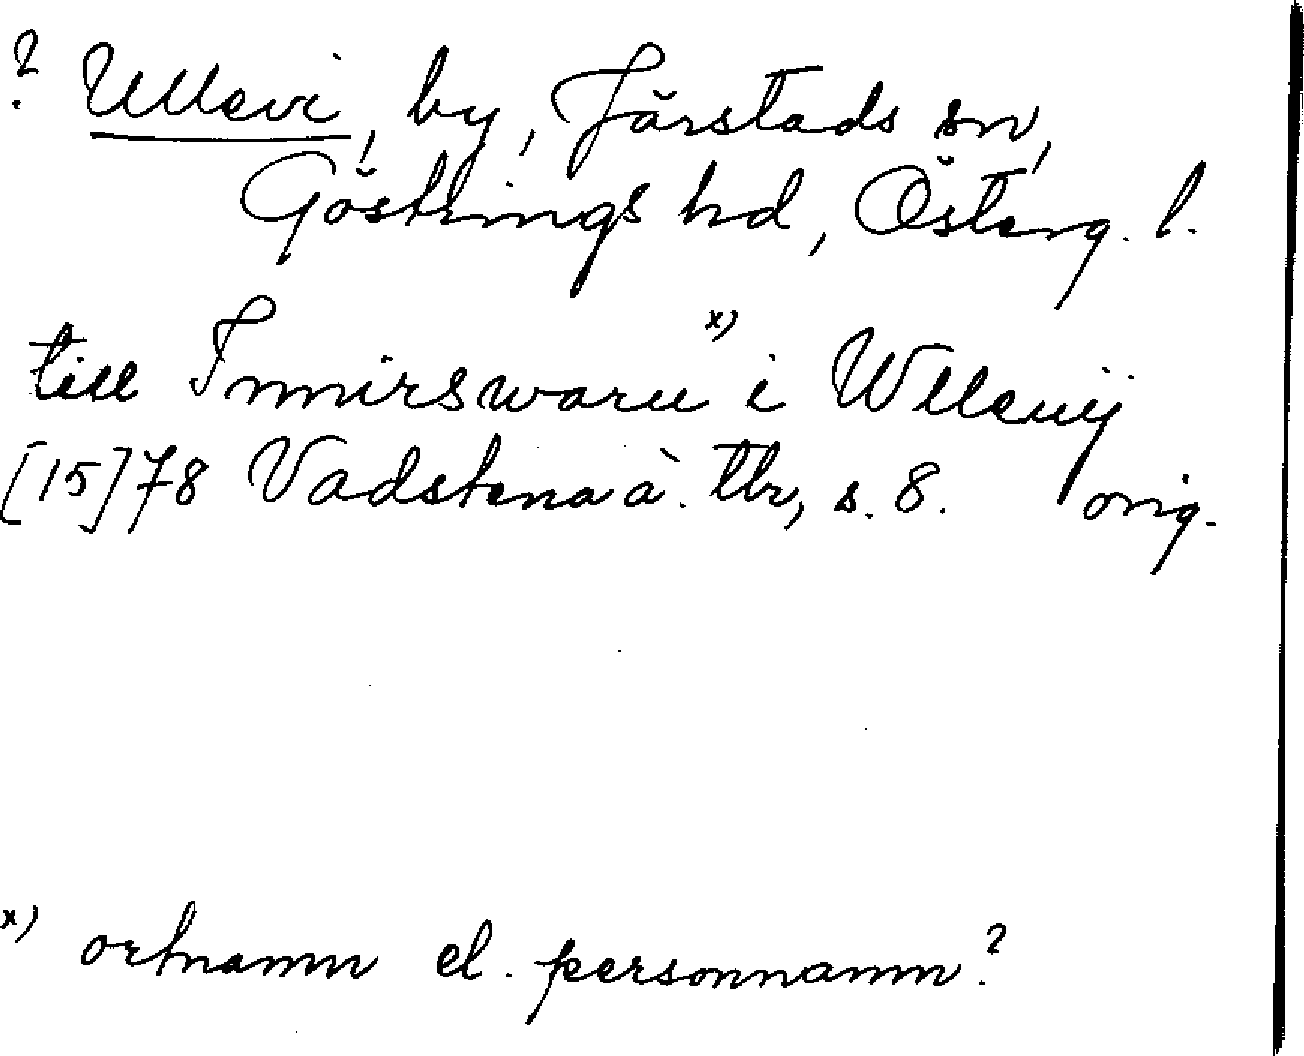 ? Ullevi, by, Järstads sn,
Göstrings hd, Österg. l.
till Immirswaru x) i Wlleuij
[15]78 Vadstena ä. tb, s. 8. orig.
x) ortnamn el. personnamn?